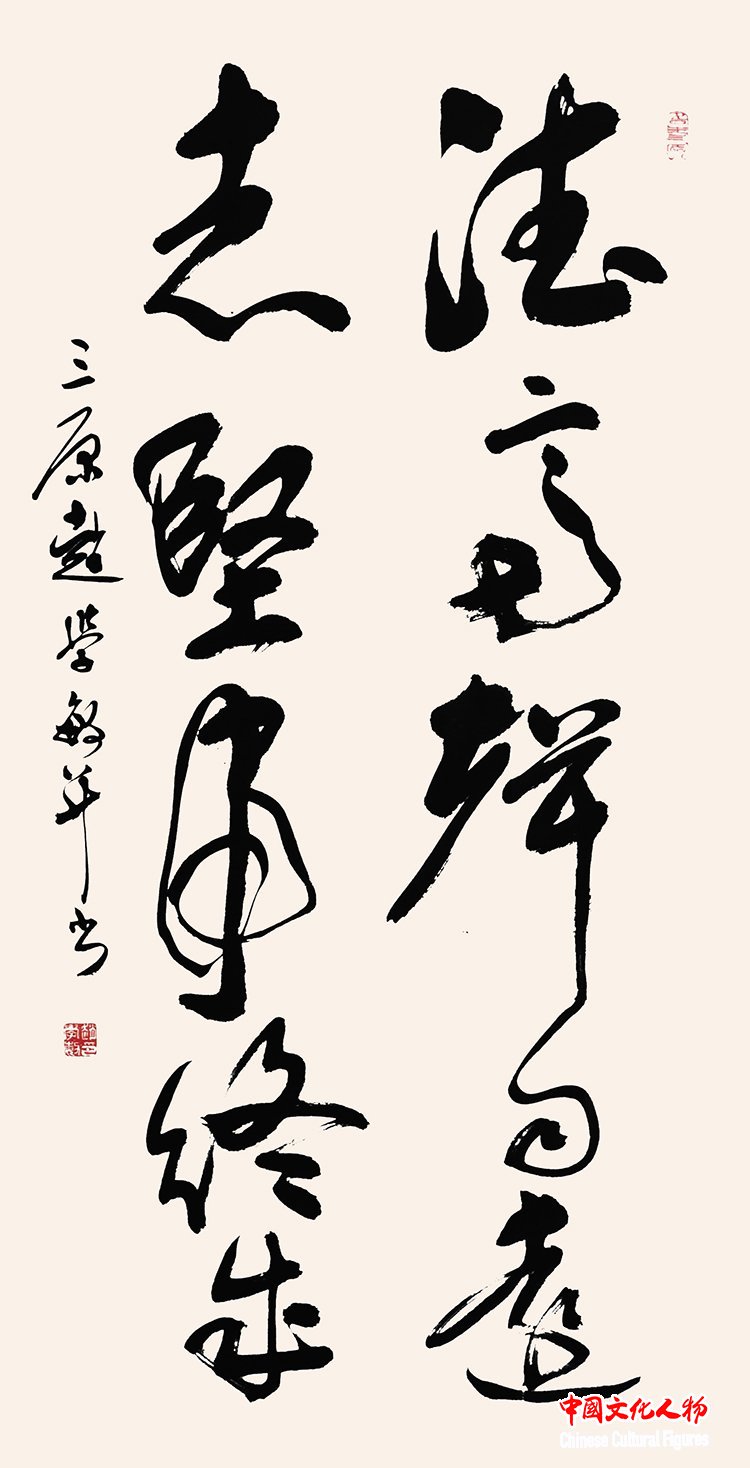 德高聲自遠
志堅事終成
三原趙學敏草书
中國文化人物
Chinese Cultural Figures